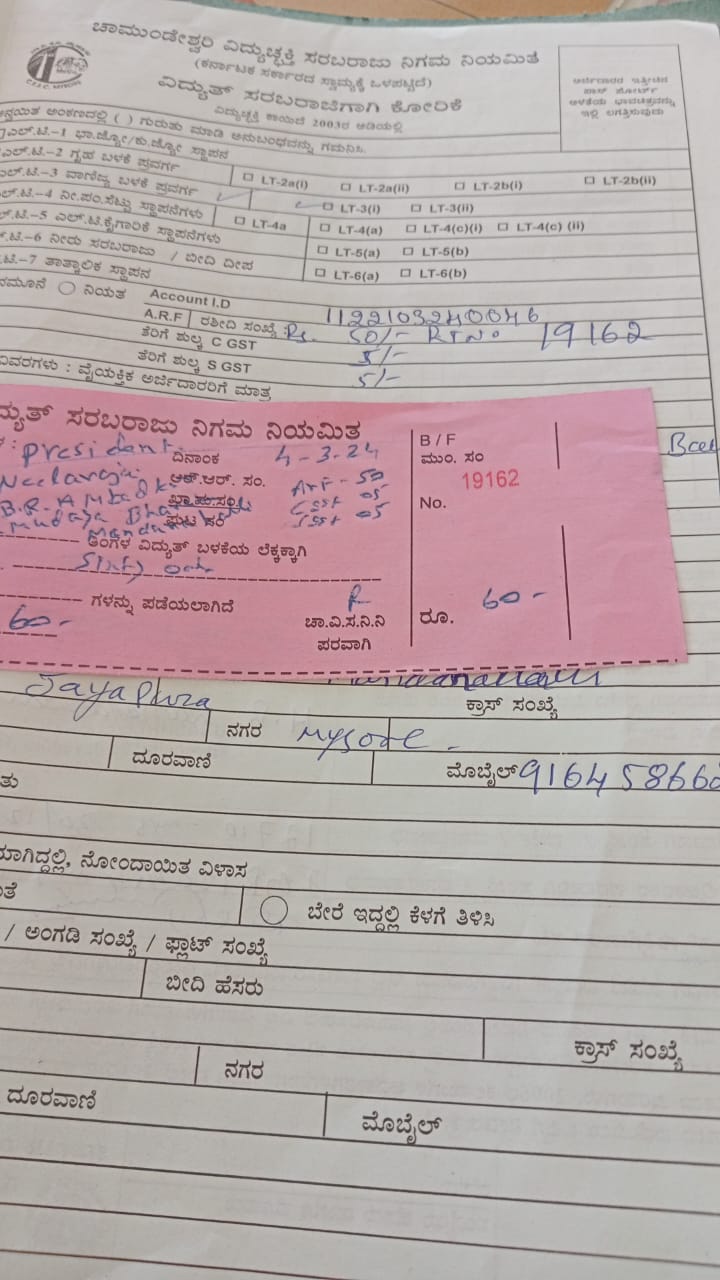 ಚಾಮುಂಡೇಶ್ವರಿ ವಿದ್ಯುಚ್ಛಕ್ತಿ ಸರಬರಾಜು ನಿಗಮ ನಿಯಮಿತ
(ಕರ್ನಾಟಕ ಸರ್ಕಾರದ ಸ್ವಾಮ್ಯಕ್ಕೆ ಒಳಪಟ್ಟಿದೆ)
ವಿದ್ಯುತ್ ಸರಬರಾಜಿಗಾಗಿ ಕೋರಿಕೆ
ವಿದ್ಯುಚ್ಛಕ್ತಿ ಕಾಯಿದೆ 2003ರ ಅಡಿಯಲ್ಲಿ
ಅರ್ಜಿದಾರರ ಇತ್ತೀಚಿನ
ಪಾಸ್ ಪೋರ್ಟ್
ಅಳತೆಯ ಭಾವಚಿತ್ರವನ್ನು
ಇಲ್ಲಿ ಲಗತ್ತಿಸುವುದು
ಅಂಕಣದಲ್ಲಿ ( ) ಗುರುತು ಮಾಡಿ ಅನುಬಂಧವನ್ನು ಗಮನಿಸಿ.
ಎಲ್.ಟಿ.-1 ಭಾ.ಜ್ಯೋ/ಕು.ಜ್ಯೋ ಸ್ಥಾಪನ
ಎಲ್.ಟಿ.-2 ಗೃಹ ಬಳಕೆ ಪ್ರವರ್ಗ LT-2a(i) LT-2a(ii) LT-2b(i) LT-2b(ii)
ಎಲ್.ಟಿ.-3 ವಾಣಿಜ್ಯ ಬಳಕೆ ಪ್ರವರ್ಗ LT-3(i) LT-3(ii)
ಎಲ್.ಟಿ.-4 ನೀ.ಪಂ.ಸೆಟ್ಟು ಸ್ಥಾಪನೆಗಳು LT-4a LT-4(a) LT-4(c)(i) LT-4(c) (ii)
ಎಲ್.ಟಿ.-5 ಎಲ್.ಟಿ.ಕೈಗಾರಿಕೆ ಸ್ಥಾಪನೆಗಳು LT-5(a) LT-5(b)
ಟಿ.-6 ನೀರು ಸರಬರಾಜು / ಬೀದಿ ದೀಪ LT-6(a) LT-6(b)
ಟಿ.-7 ತಾತ್ಕಾಲಿಕ ಸ್ಥಾಪನ
ನಮೂನೆ ನಿಯತ Account I.D 1122103240046
A.R.F ರಶೀದಿ ಸಂಖ್ಯೆ : Rs. 50/- RT No 19162
ತೆರಿಗೆ ಶುಲ್ಕ C GST 5/-
ತೆರಿಗೆ ಶುಲ್ಕ S GST 5/-
ವಿವರಗಳು : ವೈಯಕ್ತಿಕ ಅರ್ಜಿದಾರರಿಗೆ ಮಾತ್ರ
ವಿದ್ಯುತ್ ಸರಬರಾಜು ನಿಗಮ ನಿಯಮಿತ
President ದಿನಾಂಕ 4-3-24
ಆರ್.ಆರ್. ಸಂ. ARF - 50
B.R. ಖಾ.ಪು.ಸಂ. CGST 05
SGST 05
ತಿಂಗಳ ವಿದ್ಯುತ್ ಬಳಕೆಯ ಲೆಕ್ಕಕ್ಕಾಗಿ
Sixty
ಗಳನ್ನು ಪಡೆಯಲಾಗಿದೆ
60- ಚಾ.ವಿ.ಸ.ನಿ.ನಿ
ಪರವಾಗಿ
B / F
ಮುಂ. ಸಂ
19162
No.
ರೂ. 60-
Jayapura ಕ್ರಾಸ್ ಸಂಖ್ಯೆ
ನಗರ Mysore.
ದೂರವಾಣಿ ಮೊಬೈಲ್ 916458660
ನೋಂದಾಯಿತ ವಿಳಾಸ
ಬೇರೆ ಇದ್ದಲ್ಲಿ ಕೆಳಗೆ ತಿಳಿಸಿ
/ ಅಂಗಡಿ ಸಂಖ್ಯೆ / ಫ್ಲಾಟ್ ಸಂಖ್ಯೆ
ಬೀದಿ ಹೆಸರು
ಕ್ರಾಸ್ ಸಂಖ್ಯೆ
ನಗರ
ದೂರವಾಣಿ ಮೊಬೈಲ್